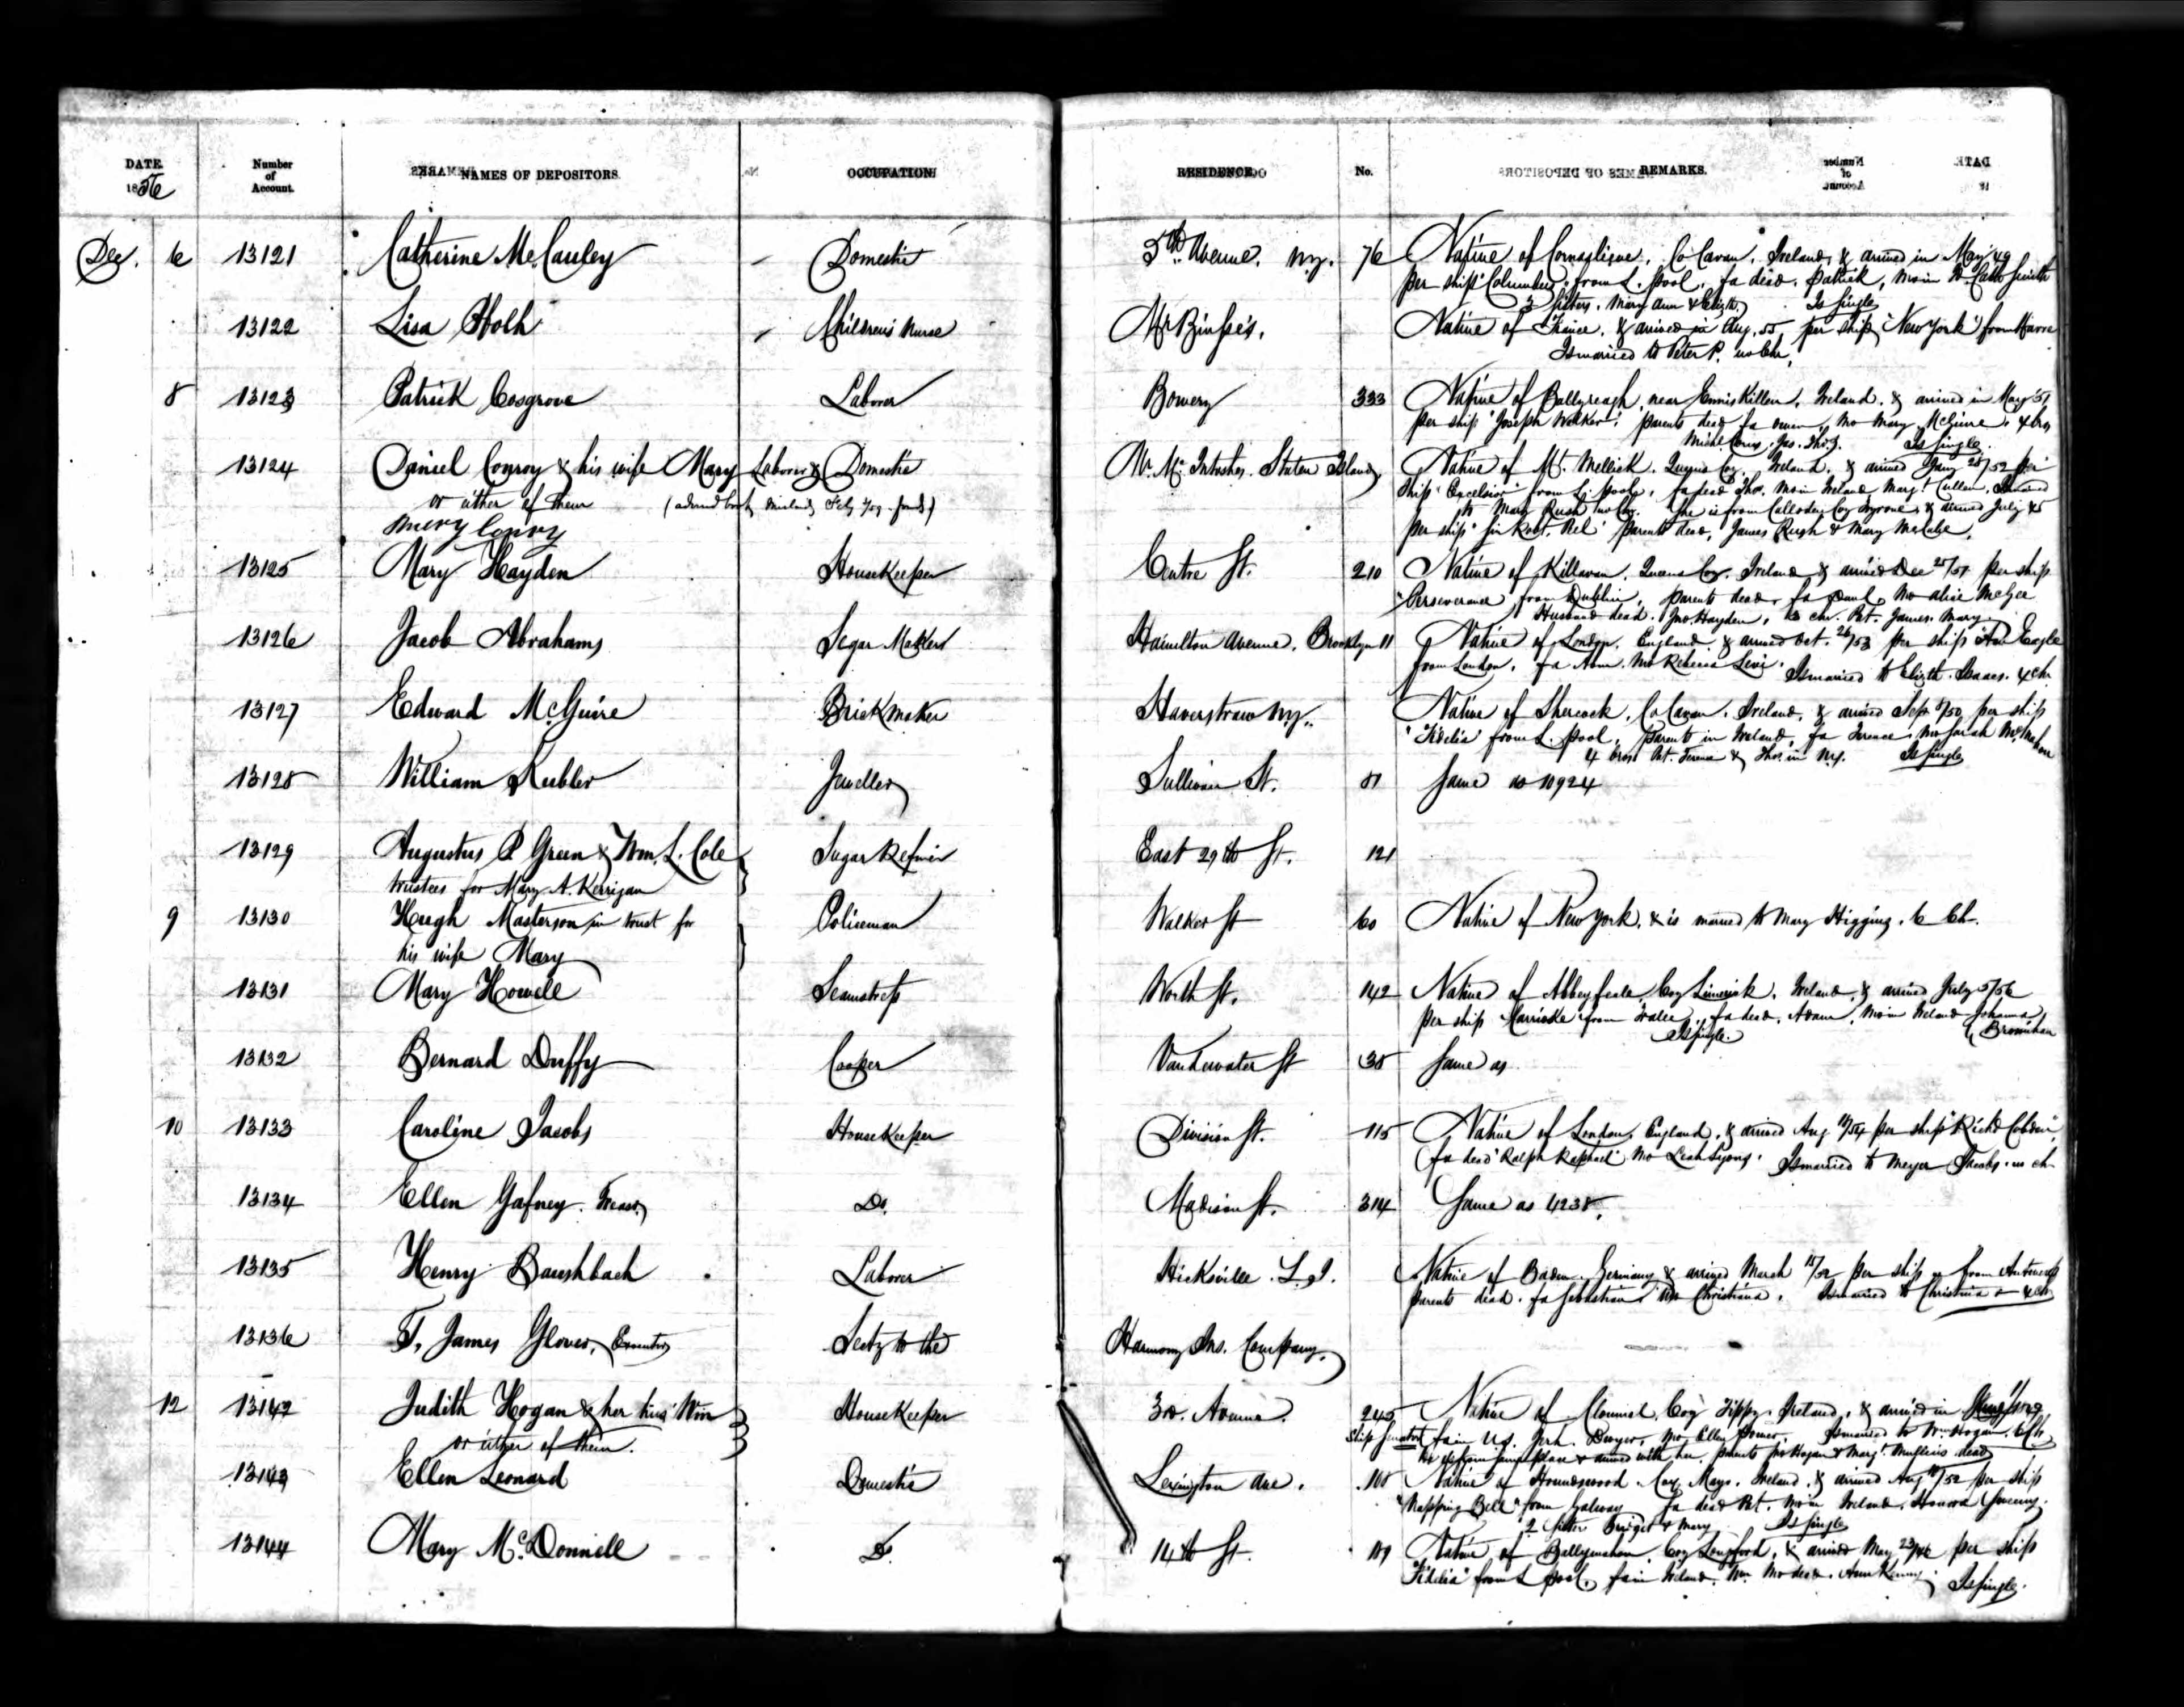 DATE. 1856
Number of Account.
NAMES OF DEPOSITORS.
OCCUPATION.
RESIDENCE.
No.
REMARKS.
Dec. 6 13121 Catherine McCauley Domestic 5th Avenue. N.Y. 76 Native of Cornaslieve, Co Cavan, Ireland, & arrived in May 49
per ship "Columbus" from L. pool, fa dead, Patrick, mo in
3 Sisters, Mary Ann & Elizth Is single
13122 Lisa Children's Nurse Mr Binsse's, Native of France, & arrived in Aug. 55, per ship "New York" from Havre
Is married to Peter P. no Chr.
8 13123 Patrick Cosgrove Laborer Bowery 333 Native of Ballyreagh, near Enniskillen, Ireland, & arrived in May 51
per ship "Joseph Walker", parents dead, fa Owen, mo Mary McGuire, 4 bros
Michl Jas. Thos. Is single.
13124 Daniel Conroy & his wife Mary Laborer & Domestic Mr McIntoshes. Staten Island, Native of Mt. Mellick, Queens Coy. Ireland, & arrived Jany 28/52 per
or either of them ship "Excelsior" from L. pool, fa dead Thos. mo in Ireland, Margt Cullen, Is married
to Mary Rush no Chr. She is from Coy Tyrone, & arrived July 45
Mary Conroy per ship "Sir Robt. Peel" parents dead, James Rush & Mary McCabe,
13125 Mary Hayden HouseKeeper Centre St. 210 Native of Killavan, Queens Coy. Ireland & arrived Dec 25/51 per ship
"Perseverance" from Dublin, parents dead, fa Paul, mo Alice McGee
Husband dead, Jno Hayden, 3 chr. Pat. James. Mary
13126 Jacob Abrahams Segar Maker Hamilton Avenue, Brooklyn 11 Native of London, England, & arrived Oct. 26/53 per ship "Am Eagle
from London, fa Abm. mo Rebecca Levi. Is married to Elizth Isaacs. 4 chr
13127 Edward McGuire Brickmaker Haverstraw N.Y. Native of Shercock, Co Cavan, Ireland, & arrived Sep. 8/50 per ship
"Fidelia" from L. pool, parents in Ireland, fa Terence, mo Sarah McMahon
4 bros Pat. Terence & Thos. in N.Y. Is single
13128 William Kubler Jeweller Sullivan St. 81 Same as 10924
13129 Augustus P Green & Wm. L. Cole Sugar Refiner East 29th St. 121
trustees for Mary A. Kerrigan
9 13130 Hugh Masterson in trust for Policeman Walker St 60 Native of New York, & is married to Mary Higgins. 6 Ch.
his wife Mary
13131 Mary Howell Seamstress Worth St. 142 Native of Abbeyfeale, Coy Limerick, Ireland, & arrived July 5/56
per ship from Tralee, fa dead, Adam, mo in Ireland Johanna
Is single. Brosnihan
13132 Bernard Duffy Cooper Vandewater St 38 Same as
10 13133 Caroline Jacobs HouseKeeper Division St. 115 Native of London, England, & arrived Aug 11/54 per ship "Richd Cobden",
fa dead "Ralph Raphael" mo Leah Lyons. Is married to Meyer Jacobs. no ch
13134 Ellen Gafney. Treasr Do. Madison St. 314 Same as 4238.
13135 Henry Baushbach Laborer Hicksville L.I. Native of Baden. Germany & arrived March 15/52 per ship from Antwerp
parents dead. fa Sebastian, mo Christiana. Is married to Christina 4 ch
13136 T. James Glover, Executor Secty to the Harmony Ins. Company,
12 13142 Judith Hogan & her husb Wm HouseKeeper 3d. Avenue. 245 Native of Clonmel, Coy Tippy. Ireland, & arrived in
or either of them. ship fa in U.S. Jerh. Dwyer, mo Ellen Power. Is married to Wm Hogan. 6 Ch.
He is from same place & arrived with her, parents Jno Hogan & Margt Mullins dead
13143 Ellen Leonard Domestic Lexington Ave. 108 Native of Houndswood Coy Mayo. Ireland, & arrived Aug 10/52 per ship
from Galway fa dead Pat. mo in Ireland, Honora Sweeny.
2 Sisters Bridget & Mary Is single
13144 Mary McDonnell Do. 14th St. 119 Native of Ballymahon, Coy Longford, & arrived May 23/46 per ship
"Fidelia" from L pool, fa in Ireland, Wm. mo dead, Ann Kenny. Is single.